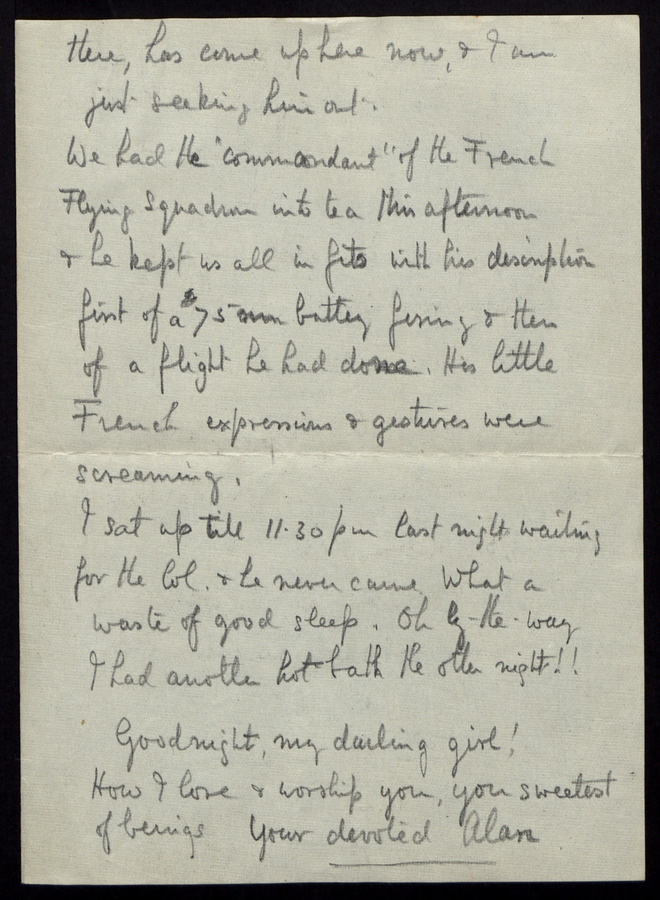 there, has come up here now, & I am
just seeking him out.
We had the "commandant" of the French
Flying Squadron into tea this afternoon
& he kept us all in fits with his description
first of a 75 mm battery firing & then
of a flight he had done. His little
French expressions & gestures were
screaming.
I sat up till 11.30 pm last night waiting
for the Col. & he never came. What a
waste of good sleep. Oh by-the-way
I had another hot bath the other night!!
Goodnight, my darling girl!
How I love & worship you, you sweetest
of beings Your devoted Alan